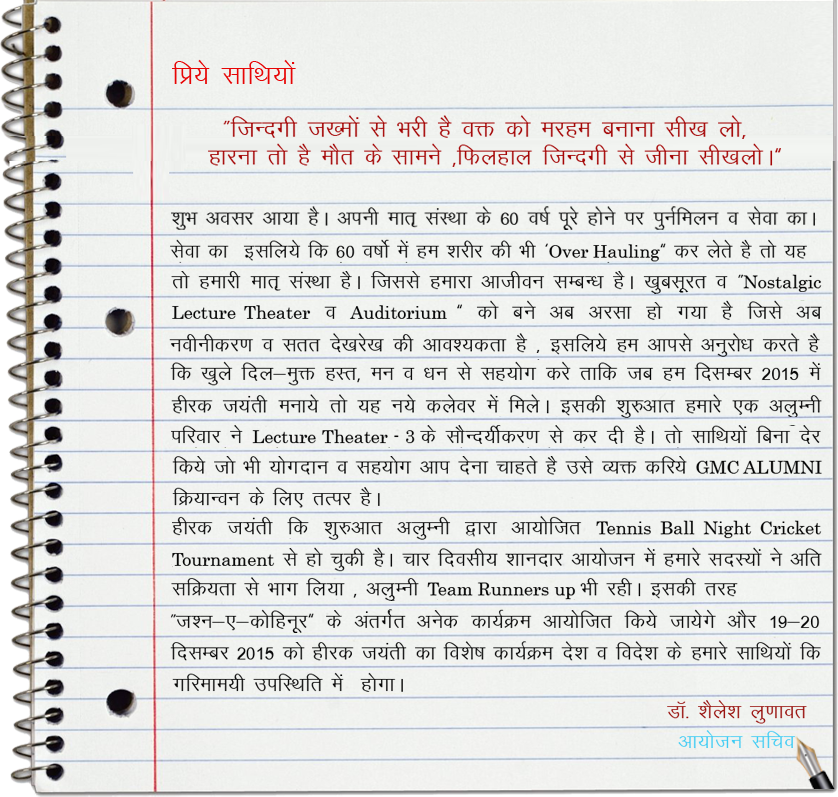 प्रिये साथियों
"जिन्दगी जख्मों से भरी है वक्त को मरहम बनाना सीख लो,
हारना तो है मौत के सामने ,फिलहाल जिन्दगी से जीना सीखलो।"
शुभ अवसर आया है। अपनी मातृ संस्था के 60 वर्ष पूरे होने पर पुर्नमिलन व सेवा का।
सेवा का इसलिये कि 60 वर्षो में हम शरीर की भी 'Over Hauling" कर लेते है तो यह
तो हमारी मातृ संस्था है। जिससे हमारा आजीवन सम्बन्ध है। खुबसूरत व "Nostalgic
Lecture Theater व Auditorium " को बने अब अरसा हो गया है जिसे अब
नवीनीकरण व सतत देखरेख की आवश्यकता है , इसलिये हम आपसे अनुरोध करते है
कि खुले दिल–मुक्त हस्त, मन व धन से सहयोग करे ताकि जब हम दिसम्बर 2015 में
हीरक जयंती मनाये तो यह नये कलेवर में मिले। इसकी शुरुआत हमारे एक अलुम्नी
परिवार ने Lecture Theater - 3 के सौन्दर्यीकरण से कर दी है। तो साथियों बिना देर
किये जो भी योगदान व सहयोग आप देना चाहते है उसे व्यक्त करिये GMC ALUMNI
क्रियान्वन के लिए तत्पर है।
हीरक जयंती कि शुरुआत अलुम्नी द्वारा आयोजित Tennis Ball Night Cricket
Tournament से हो चुकी है। चार दिवसीय शानदार आयोजन में हमारे सदस्यों ने अति
सक्रियता से भाग लिया , अलुम्नी Team Runners up भी रही। इसकी तरह
"जश्न–ए–कोहिनूर" के अंतर्गत अनेक कार्यक्रम आयोजित किये जायेगे और 19–20
दिसम्बर 2015 को हीरक जयंती का विशेष कार्यक्रम देश व विदेश के हमारे साथियों कि
गरिमामयी उपस्थिति में होगा।
डॉ. शैलेश लुणावत
आयोजन सचिव